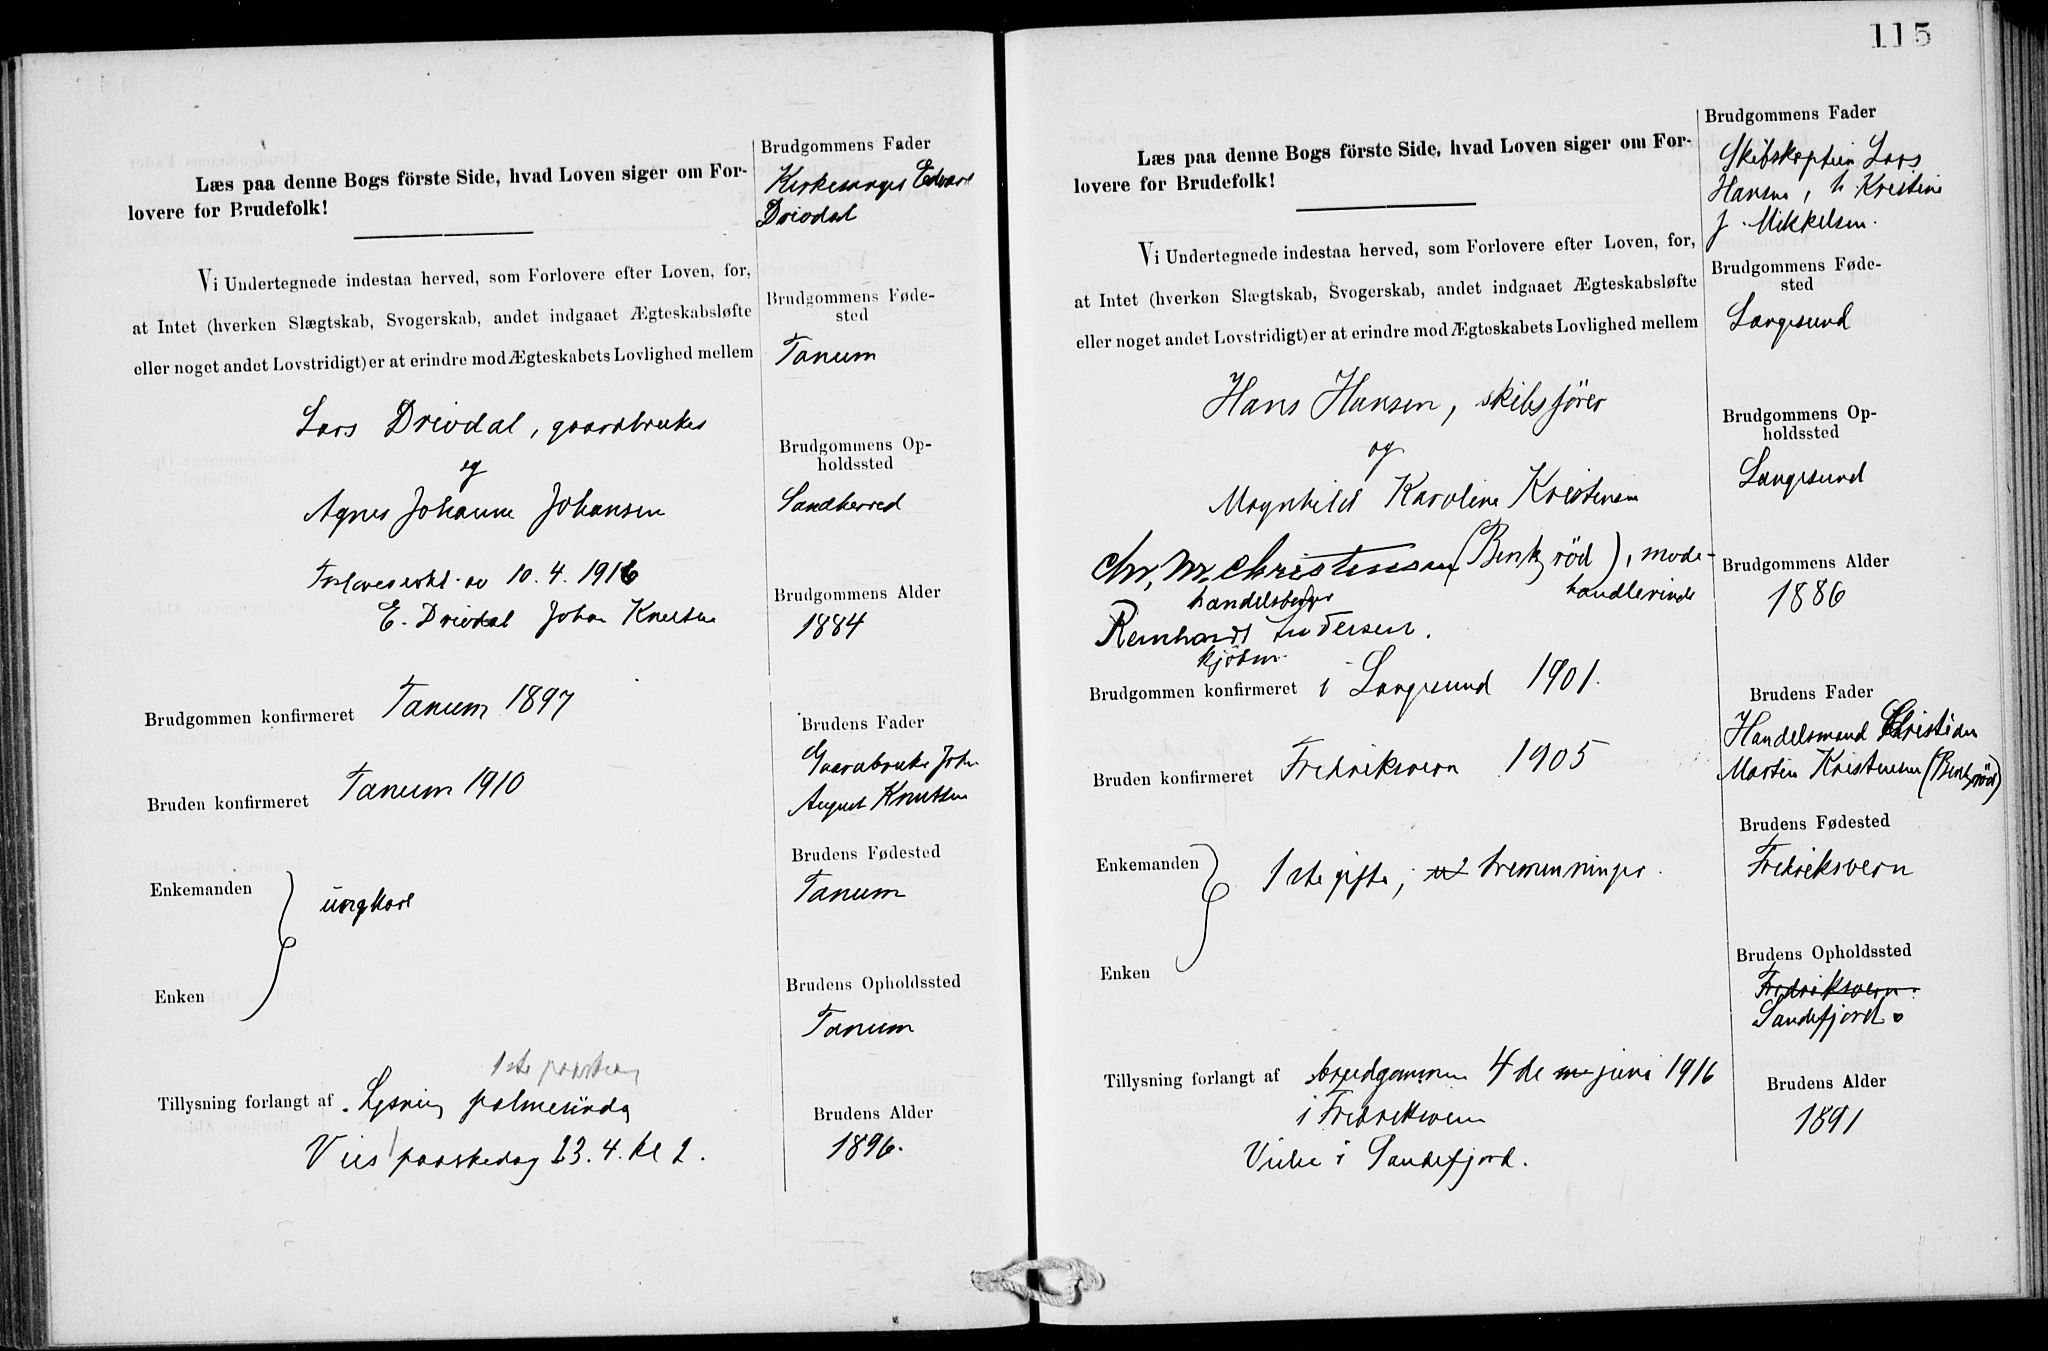 Læs paa denne Bogs förste Side, hvad Loven siger om For-
lovere for Brudefolk!
Vi Undertegnede indestaa herved, som Forlovere efter Loven, for,
at Intet (hverken Slægtskab, Svogerskab, andet indgaaet Ægteskabsløfte
eller noget andet Lovstridigt) er at erindre mod Ægteskabets Lovlighed mellem
Lars Drivdal, gaardbruker
og
Agnes Johanne Johansen
Forlovererkl. av 10.4.1916
E. Drivdal Johan Knutsen
Brudgommen konfirmeret Tanum 1897
Bruden konfirmeret Tanum 1910
Enkemanden
ungkarl
Enken
1ste paaskedag
Tillysning forlangt af . Lysning palmesöndag
Vies paaskedag 23.4. kl 1.
Brudgommens Fader
Kirkesanger Edvard
Drivdal
Brudgommens Føde-
sted
Tanum
Brudgommens Op-
holdssted
Sandherred
Brudgommens Alder
1884
Brudens Fader
Gaardbruker Johan
August Knutsen
Brudens Fødested
Tanum
Brudens Opholdssted
Tanum
Brudens Alder
1896.
115
Læs paa denne Bogs förste Side, hvad Loven siger om For-
lovere for Brudefolk!
Vi Undertegnede indestaa herved, som Forlovere efter Loven, for,
at Intet (hverken Slægtskab, Svogerskab, andet indgaaet Ægteskabsløfte
eller noget andet Lovstridigt) er at erindre mod Ægteskabets Lovlighed mellem
Hans Hansen, skibsfører
og
Magnhild Karoline Kristensen
Chr. M. Christensen (Benkrød), mode-
handelsborger handlerinde
Reinhardt Andersen.
kjöbm.
Brudgommen konfirmeret i Langesund 1901.
Bruden konfirmeret Fredriksvern 1905
Enkemanden
1ste gifte; tremenninger.
Enken
Tillysning forlangt af brudgommen 4de juni 1916
i Fredriksvern
Viede i Sandefjord.
Brudgommens Fader
Skibskaptein Lars
Hansen, h. Kristine
f. Mikkelsen.
Brudgommens Føde-
sted
Langesund
Brudgommens Op-
holdssted
Langesund
Brudgommens Alder
1886
Brudens Fader
Handelsmand Christian
Martin Kristensen (Benkrød)
Brudens Fødested
Fredriksvern
Brudens Opholdssted
Fredriksvern.
Sandefjord.
Brudens Alder
1891